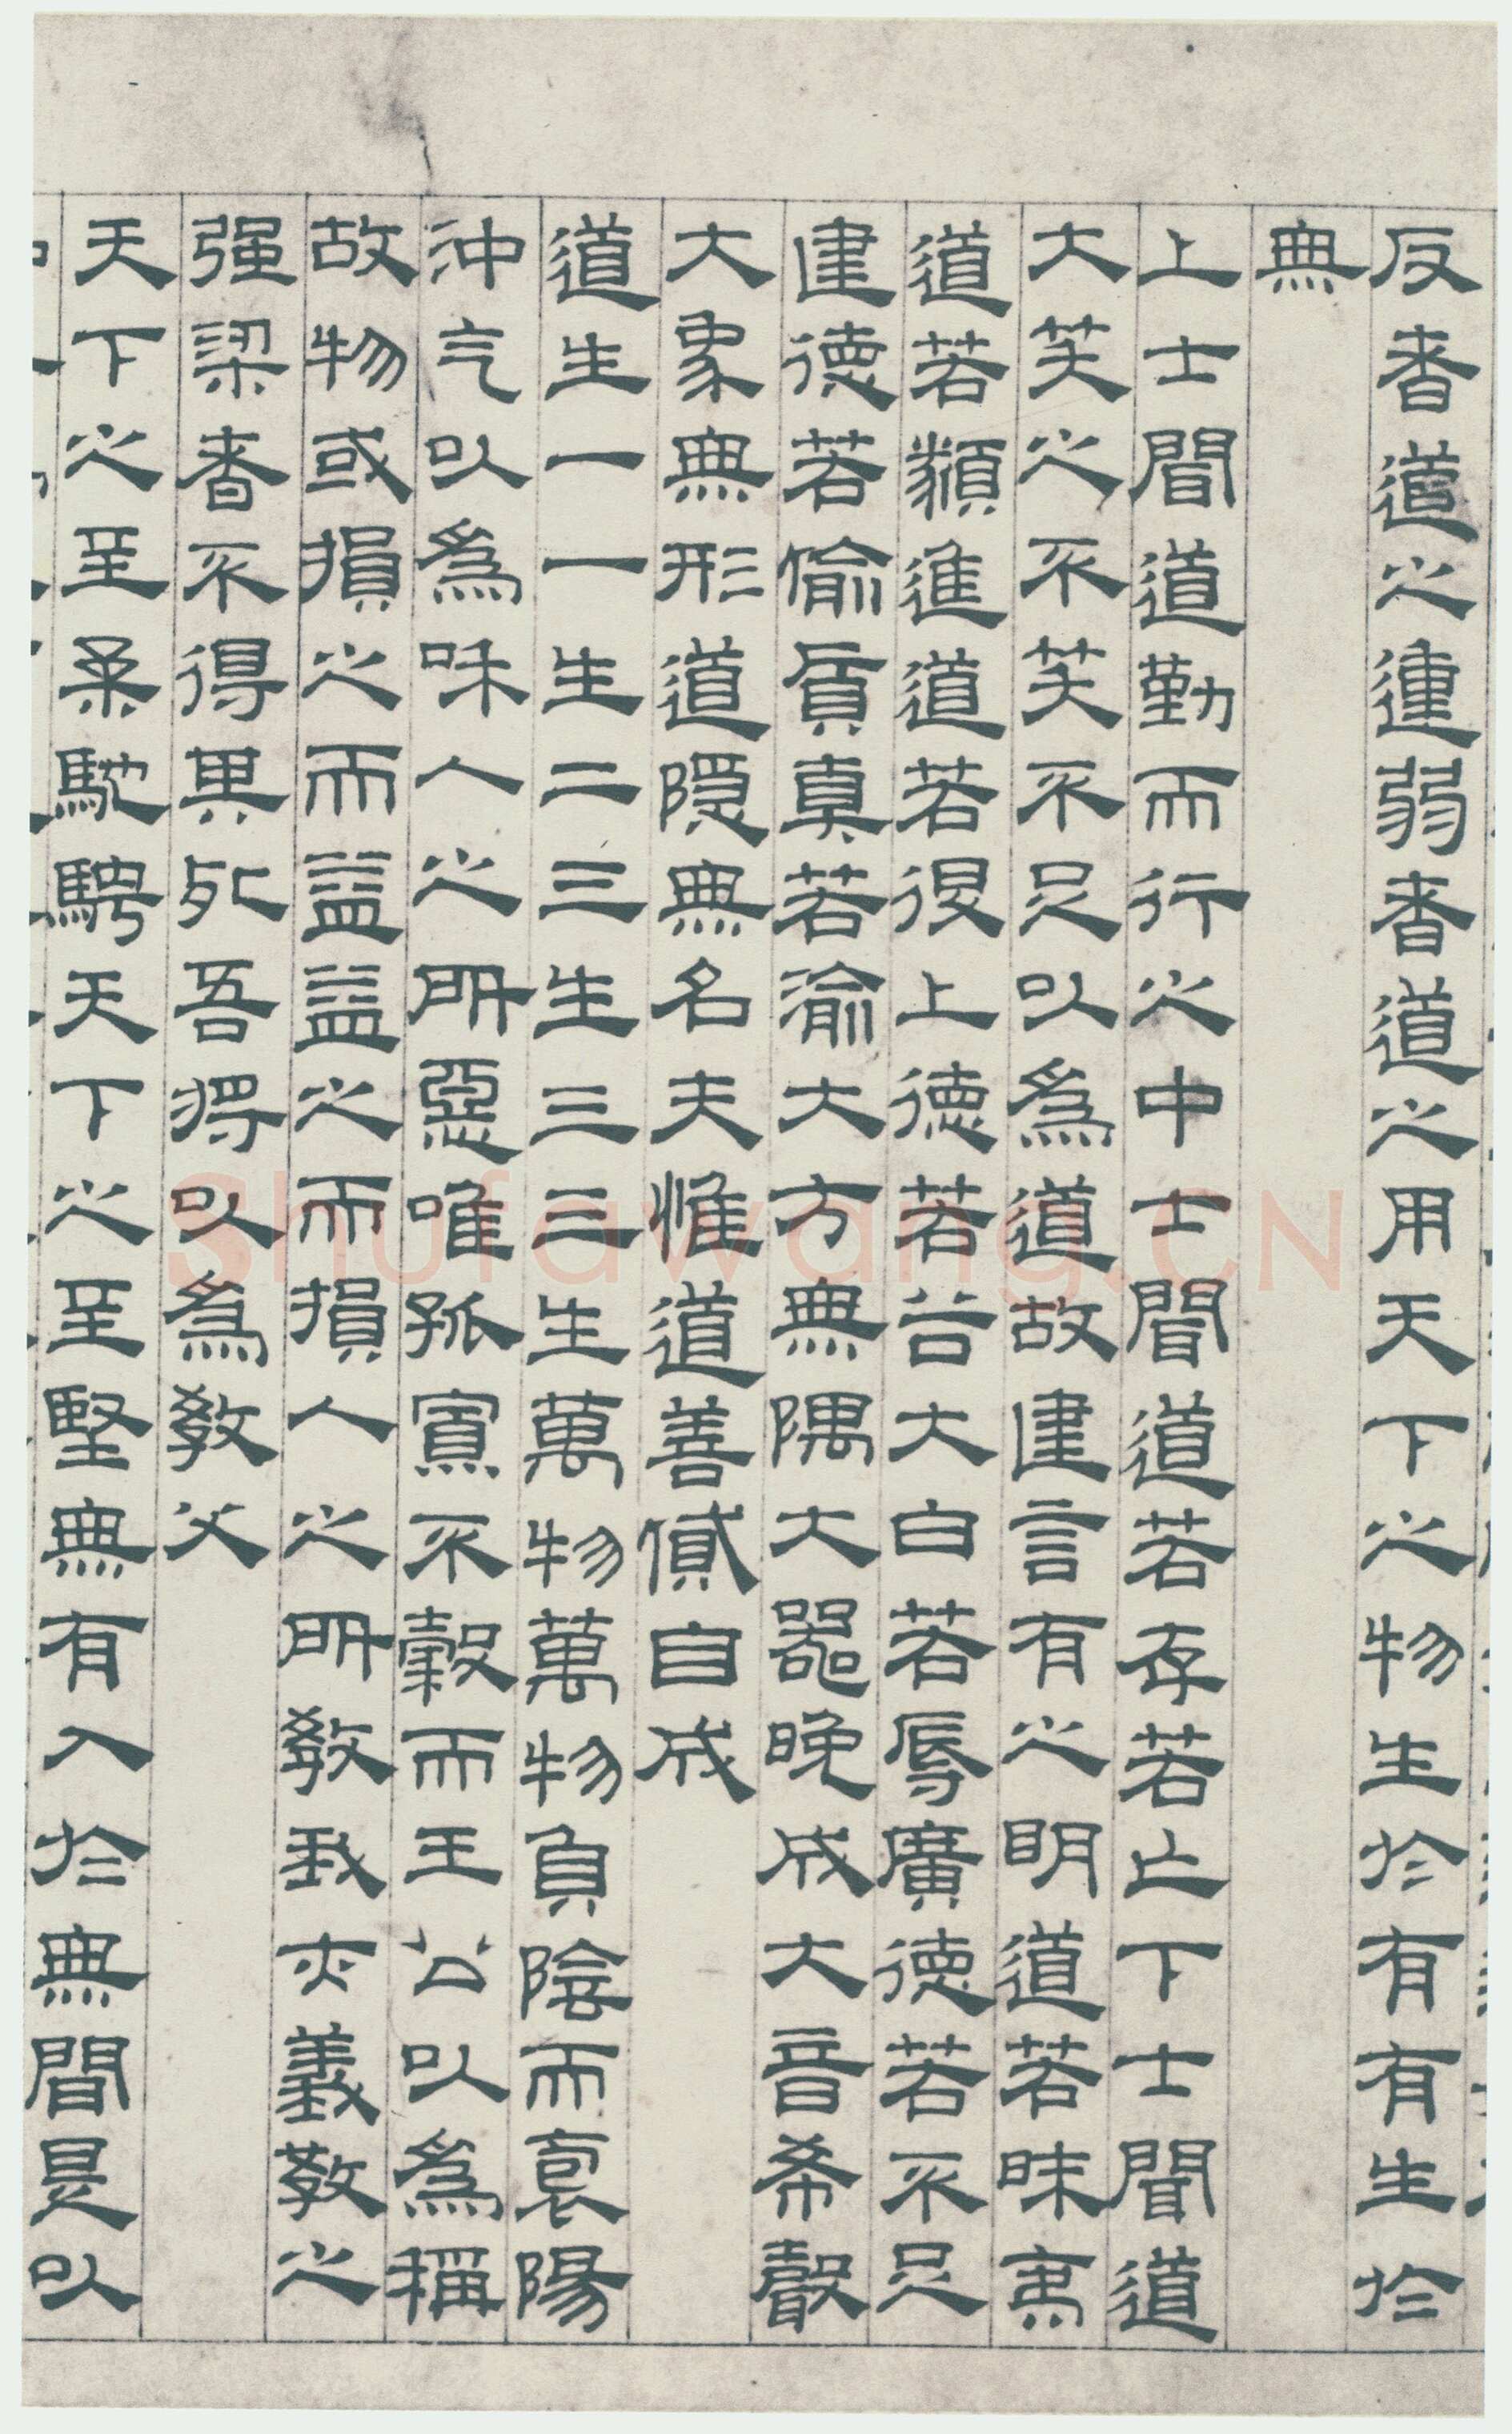 反者道之動弱者道之用天下之物生於有有生於
無
上士聞道勤而行之中士聞道若存若亡下士聞道
大笑之不笑不足以為道故建言有之明道若昧夷
道若纇進道若退上德若谷大白若辱廣德若不足
建德若偷質真若渝大方無隅大器晚成大音希聲
大象無形道隱無名夫惟道善貸且成
道生一一生二三生三三生萬物萬物負陰而袌陽
沖气以為和人之所惡唯孤寡不穀而王公以為稱
故物或損之而益益之而損人之所教我亦義教之
强梁者不得其死吾將以為教父
天下之至柔馳騁天下之至堅無有入於無間是以
Shufawang.CN